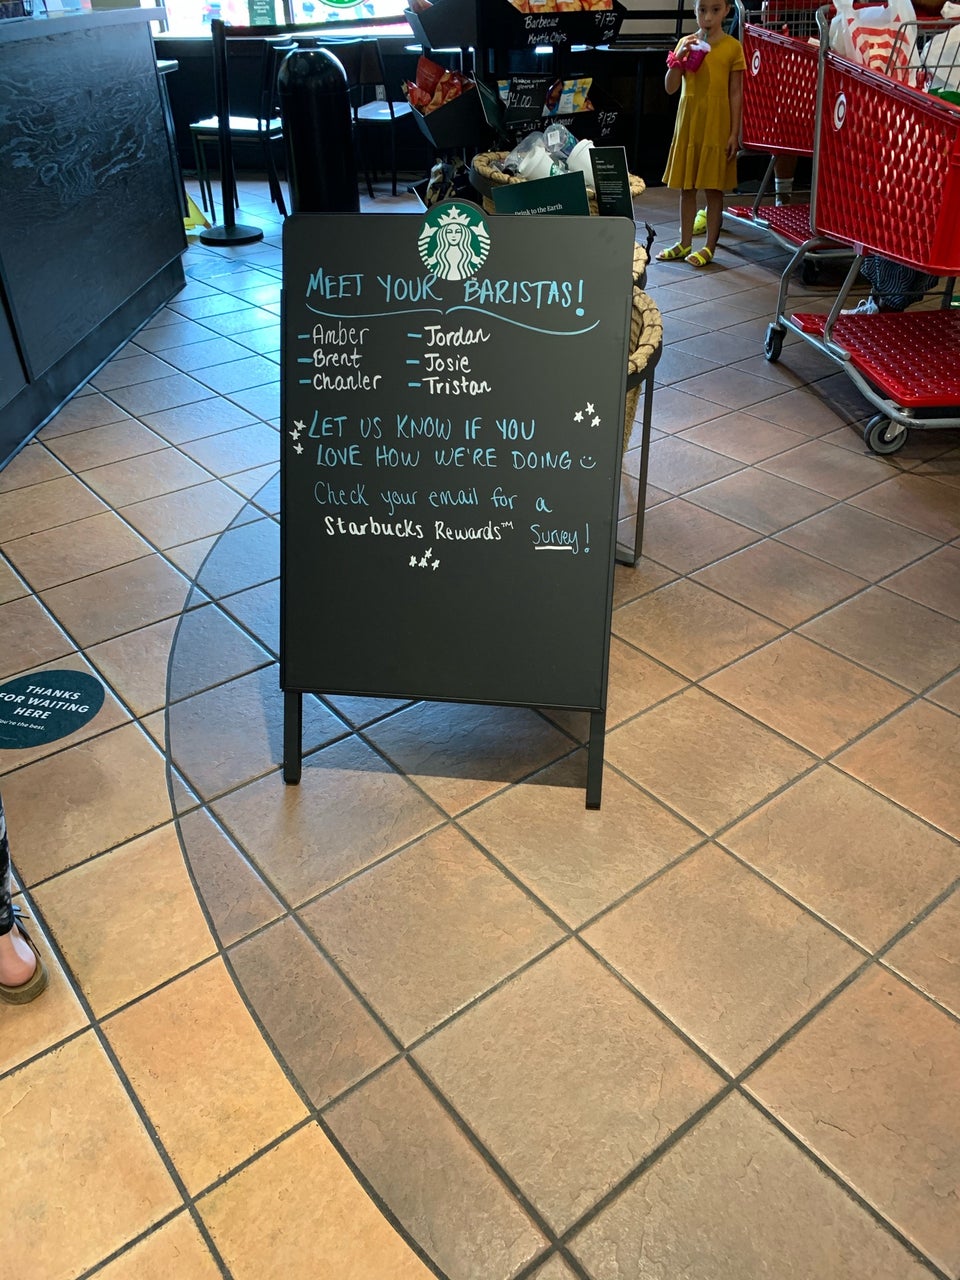 Barbecue
Kettle Chips
$1.75
$4.00
$1.75
Drink to the Earth
MEET YOUR BARISTAS!
-Amber
-Brent
-Chanler
-Jordan
-Josie
-Tristan
LET US KNOW IF YOU
LOVE HOW WE'RE DOING
Check your email for a
Starbucks Rewards™ Survey!
THANKS
FOR WAITING
HERE
You're the best.